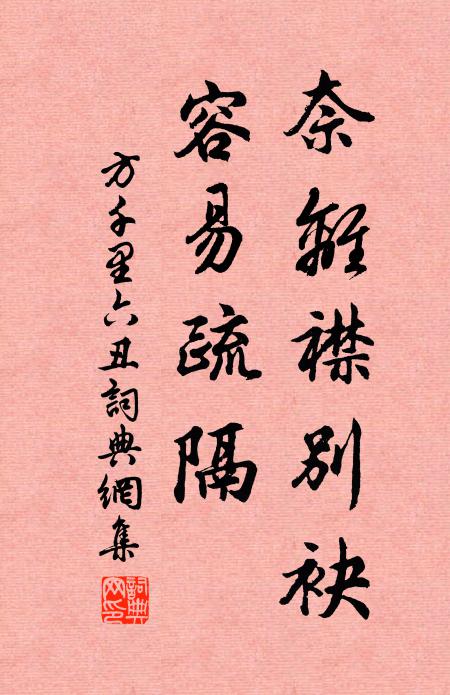 奈離襟別袂
容易疏隔
方千里六丑詞典網集
詞典網印